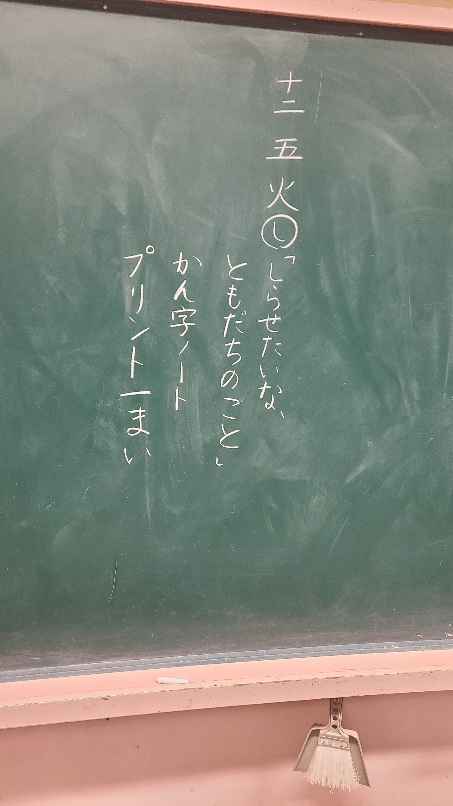 十二 五 火 ㋛「しらせたいな、
ともだちのこと」
かん字ノート
プリント一まい